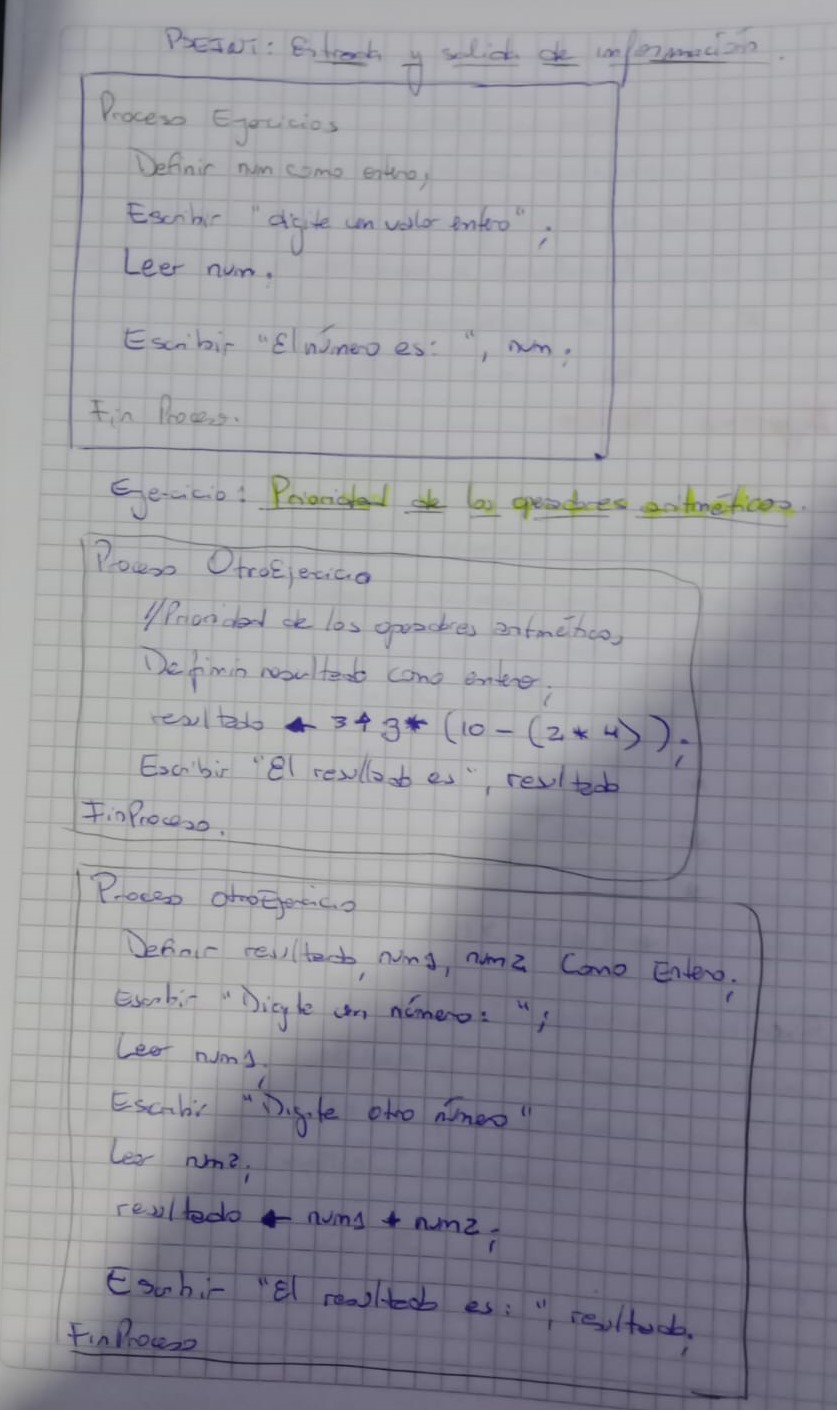 PSEINT: Entrada y salida de información.
Proceso Ejercicios
Definir num como entero;
Escribir "digite un valor entero";
Leer num.
Escribir "El número es: ", num;
Fin Proceso.
Ejercicio: Prioridad de los operadores aritméticos.
Proceso OtroEjercicio
//Prioridad de los operadores aritméticos
Definir resultado como entero;
resultado ← 3+3*(10-(2*4));
Escribir "El resultado es", resultado
FinProceso.
Proceso otroEjercicio
Definir resultado, num1, num2 Como Entero;
Escribir "Digite un número: ";
Leer num1;
Escribir "Digite otro número"
Leer num2;
resultado ← num1 + num2;
Escribir "El resultado es: ", resultado;
FinProceso